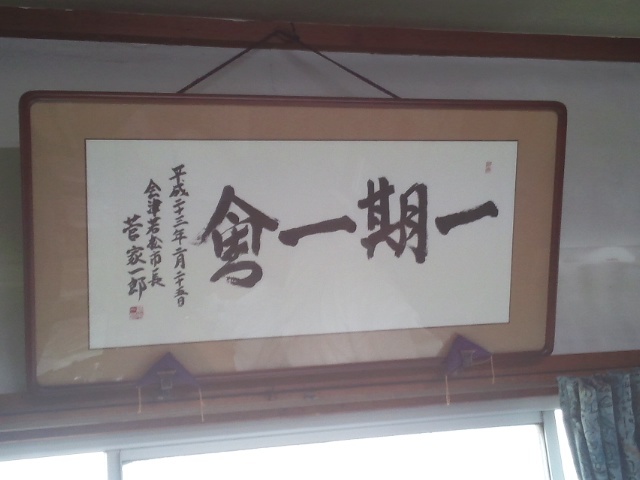 一期一會
平成二十三年二月二十五日
会津若松市長
菅家一郎